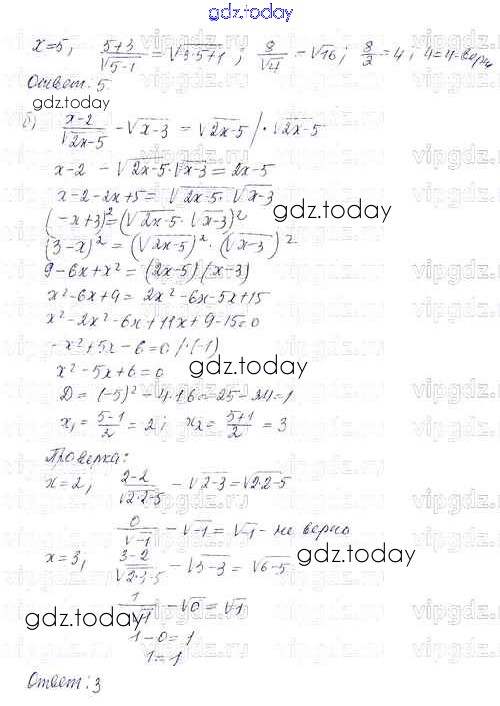 gdz.today
x=5, (5+3)/√(5-1) = √(3·5+1); 8/√4 = √16; 8/2 = 4; 4=4-верно
Ответ: 5.
gdz.today
б) (x-2)/√(2x-5) - √(x-3) = √(2x-5) /·√(2x-5)
x-2 - √(2x-5)·√(x-3) = 2x-5
x-2-2x+5 = √(2x-5)·√(x-3)
(-x+3)² = (√(2x-5)·√(x-3))²
gdz.today
(3-x)² = (√(2x-5))²·(√(x-3))²
9-6x+x² = (2x-5)(x-3)
x²-6x+9 = 2x²-6x-5x+15
x²-2x²-6x+11x+9-15=0
-x²+5x-6=0 /·(-1)
x²-5x+6=0
gdz.today
D = (-5)²-4·1·6=25-24=1
x₁ = (5-1)/2 = 2; x₂ = (5+1)/2 = 3
Проверка:
x=2; (2-2)/√(2·2-5) - √(2-3) = √(2·2-5)
0/√-1 - √-1 = √-1 - не верно
x=3; (3-2)/√(2·3-5) - √(3-3) = √(6-5)
gdz.today
1/√1 - √0 = √1
gdz.today
1-0=1
1=1
Ответ: 3
vipgdz.ru